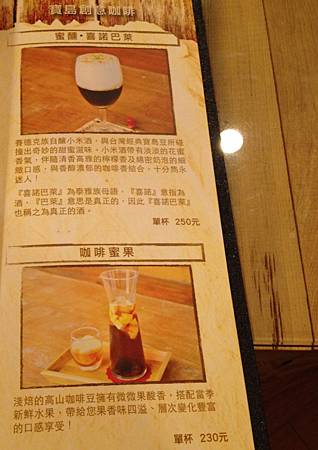 寶島創意咖啡
蜜釀·喜諾巴萊
賽德克族自釀小米酒，與台灣經典寶島豆所碰
撞出奇妙的甜蜜滋味，小米酒帶有淡淡的花蜜
香氣，伴隨清香高雅的檸檬香及綿密奶泡的細
緻口感，與香醇濃郁的咖啡香結合，十分雋永
迷人！
『喜諾巴萊』為泰雅族母語，『喜諾』意指為
酒，『巴萊』意思是真正的，因此『喜諾巴萊』
也稱之為真正的酒。
單杯 250元
咖啡蜜果
淺焙的高山咖啡豆擁有微微果酸香，搭配當季
新鮮水果，帶給您果香味四溢、層次變化豐富
的口感享受！
單杯 230元